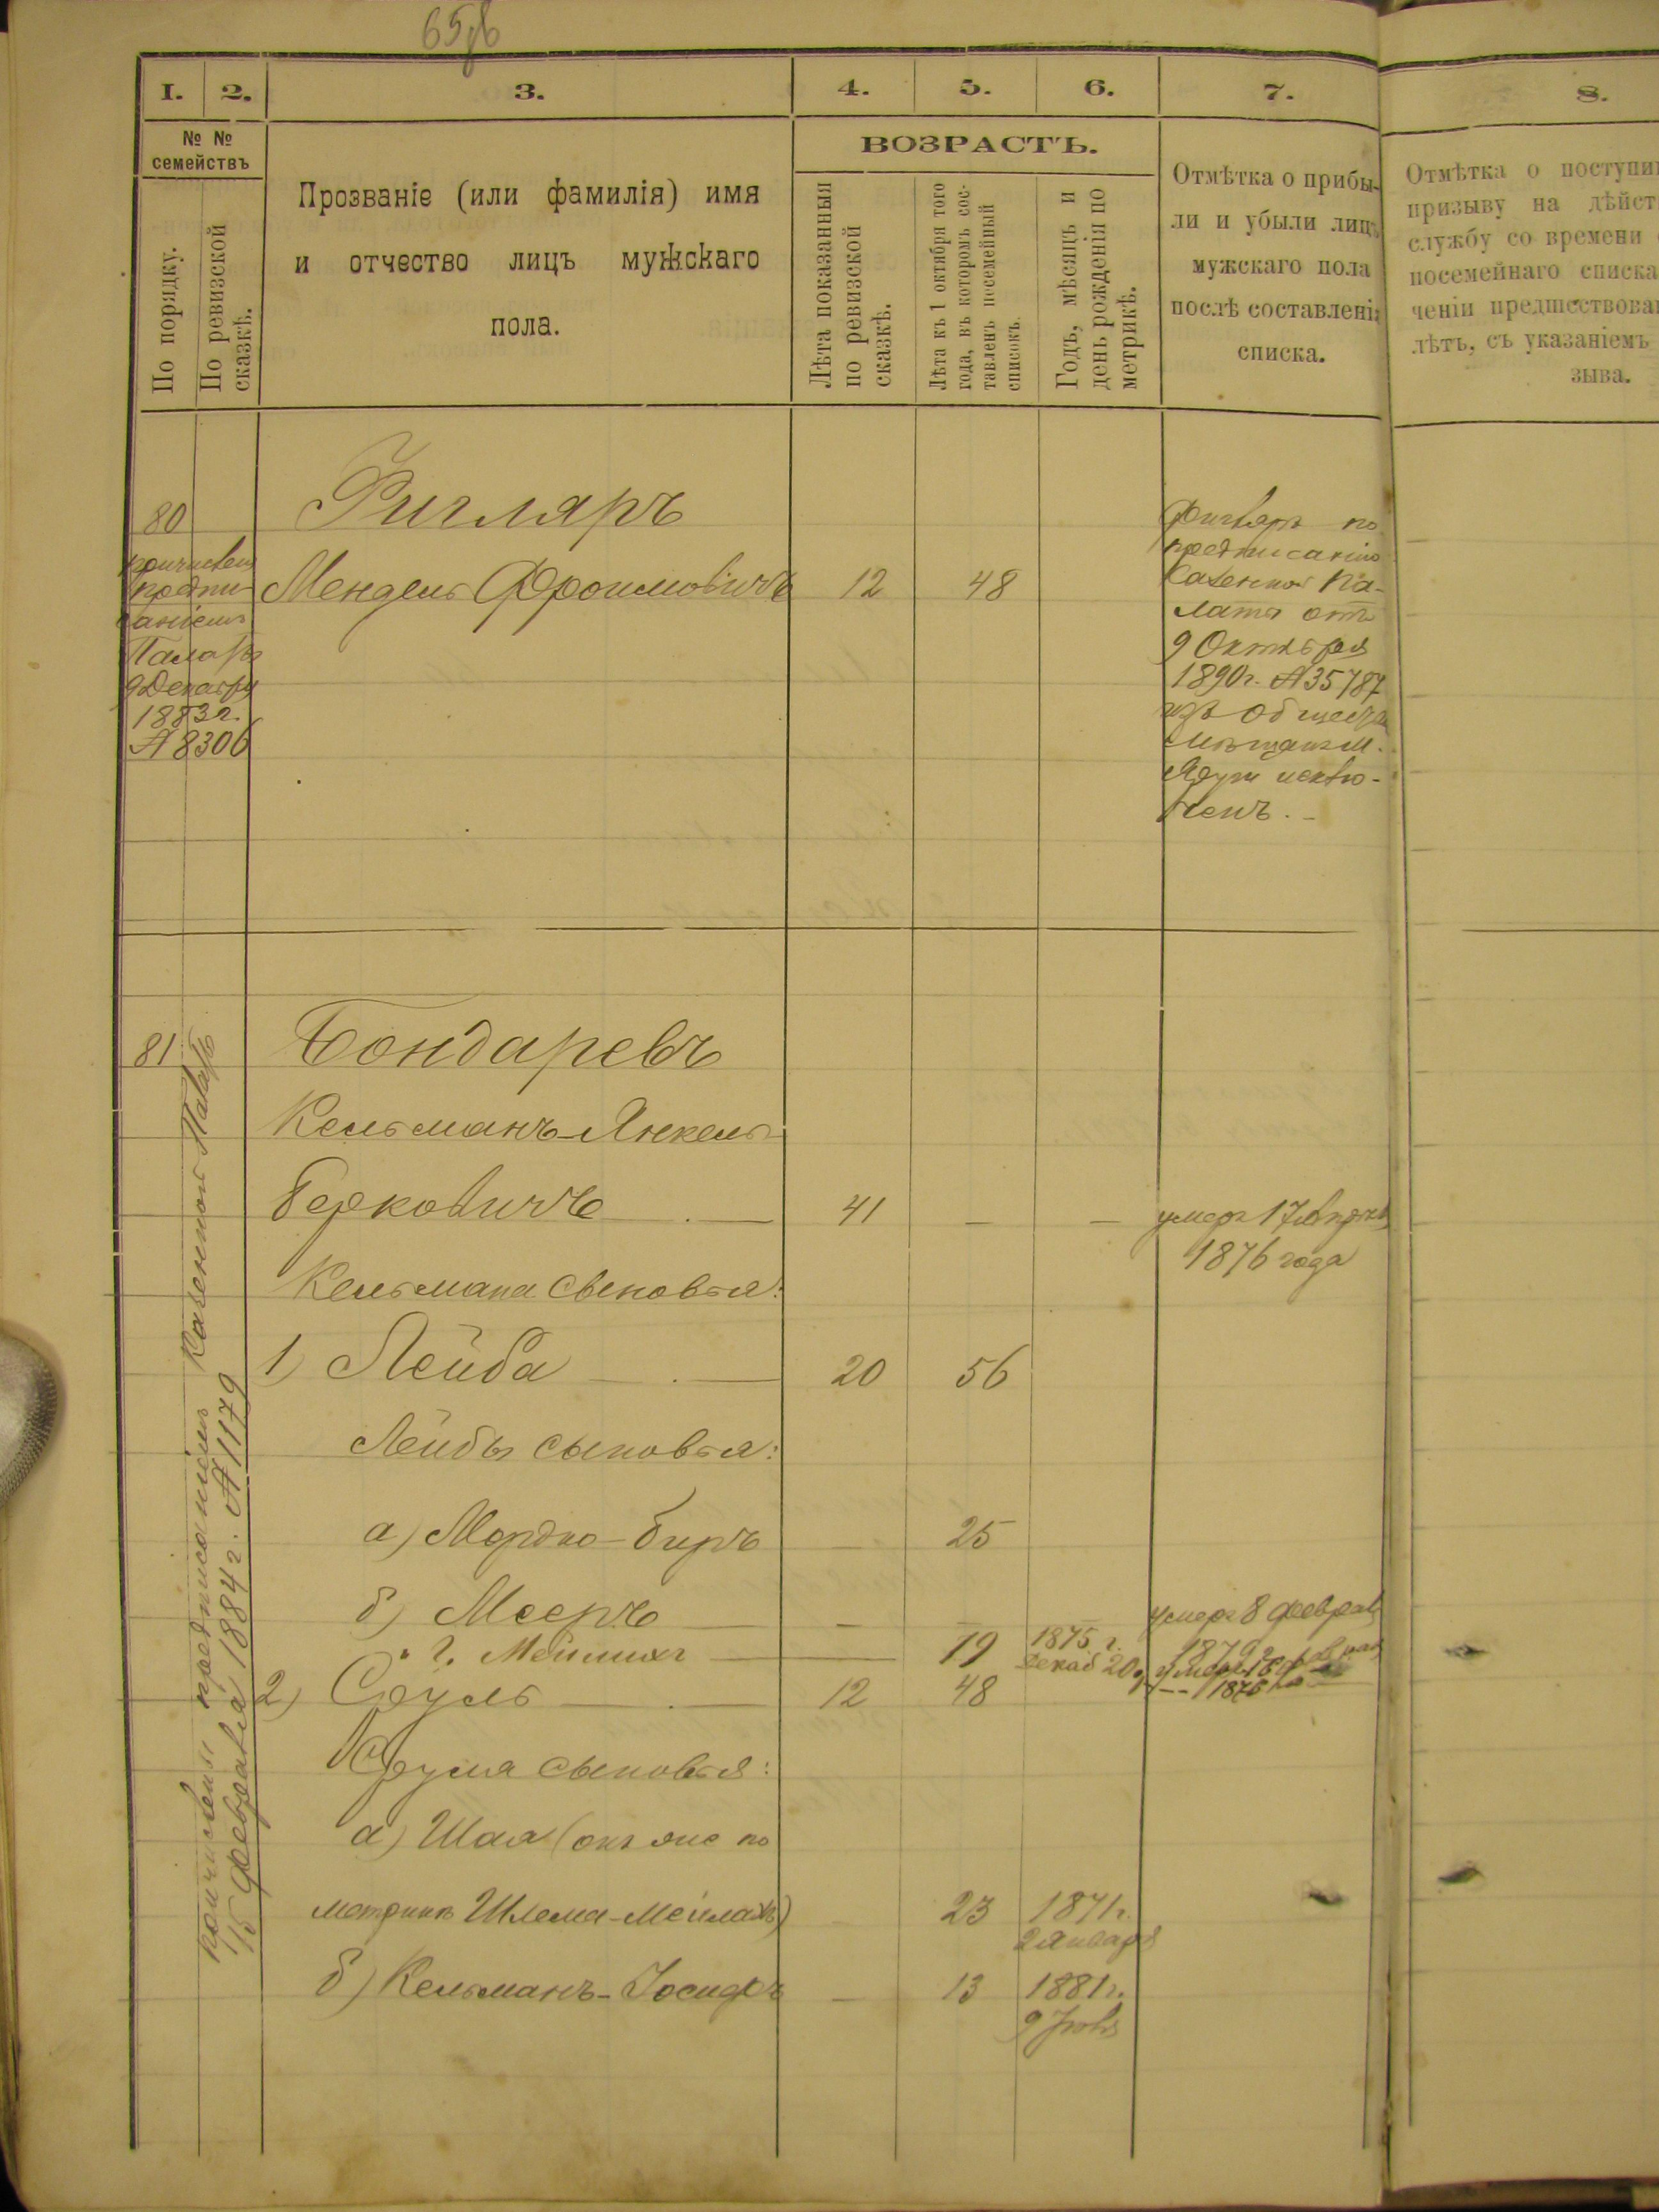 65об
1.
2.
3.
4.
5.
6.
7.
8.
№ №
семействъ
По порядку.
По ревизской
сказкѣ.
Прозваніе (или фамилія) имя
и отчество лицъ мужскаго
пола.
ВОЗРАСТЪ.
Лѣта показанныя
по ревизской
сказкѣ.
Лѣта къ 1 октября того
года, въ которомъ сос-
тавленъ посемейный
списокъ.
Годъ, мѣсяцъ и
день рожденія по
метрикѣ.
Отмѣтка о прибы-
ли и убыли лицъ
мужскаго пола
послѣ составленія
списка.
Отмѣтка о поступи
призыву на дѣйст
службу со времени
посемейнаго списка
ченіи предшествова
лѣтъ, съ указаніемъ
зыва.
80
Фигляръ
причислен
предпи-
саніемъ
Палаты
9 Декабря
1883 г.
№ 8306
Мендель Фроимовичъ
12
48
Фигляръ по
предписанію
Казенной Па-
латы отъ
9 Октября
1890 г. № 35787
изъ Общества
мѣщанъ м.
исклю-
ченъ. -
81
Бондаревъ
причислены предписаніемъ Казенной Палаты
15 февраля 1884 г. № 1179
Кельманъ-Янкель
Берковичъ
41
—
—
умеръ 17
1876 года
Кельмана сыновья:
1) Лейба
20
56
Лейбы сыновья:
а) Мордко-Биръ
—
25
б) Мееръ
—
—
умеръ 8 феврал
1879 г.
г. Мейлихъ
19
1875 г.
Декаб 20
умеръ 16
1876
2) Сруль
12
48
Сруля сыновья:
а) Шая (онъ же по
метрикѣ Шлема-Мейлахъ)
23
1871 г.
2 Января
б) Кельманъ-Іосифъ
—
13
1881 г.
9